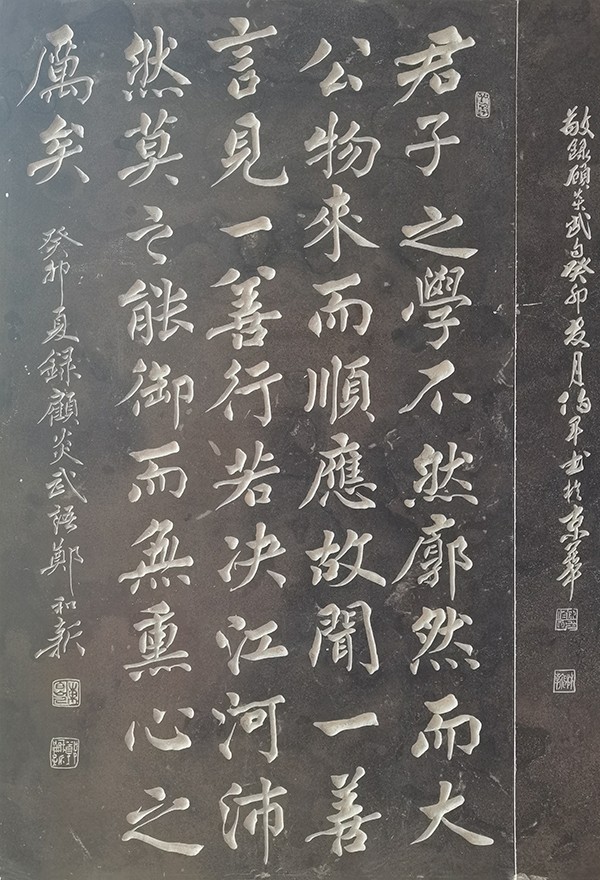 敬録顾炎武句癸卯月平书於京華
君子之學不然廓然而大
公物來而順應故聞一善
言見一善行若决江河沛
然莫之能御而無熏心之
厲矣
癸卯夏録顧炎武語鄭和新